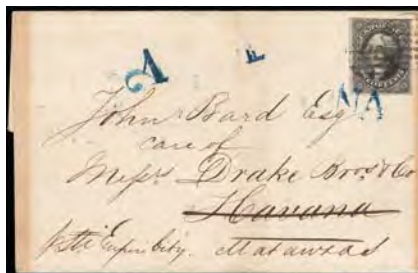 2 F
NA
John Bard Esq
care of
Messrs Drake Bros & Co
Havana
Empire City. Matanzas